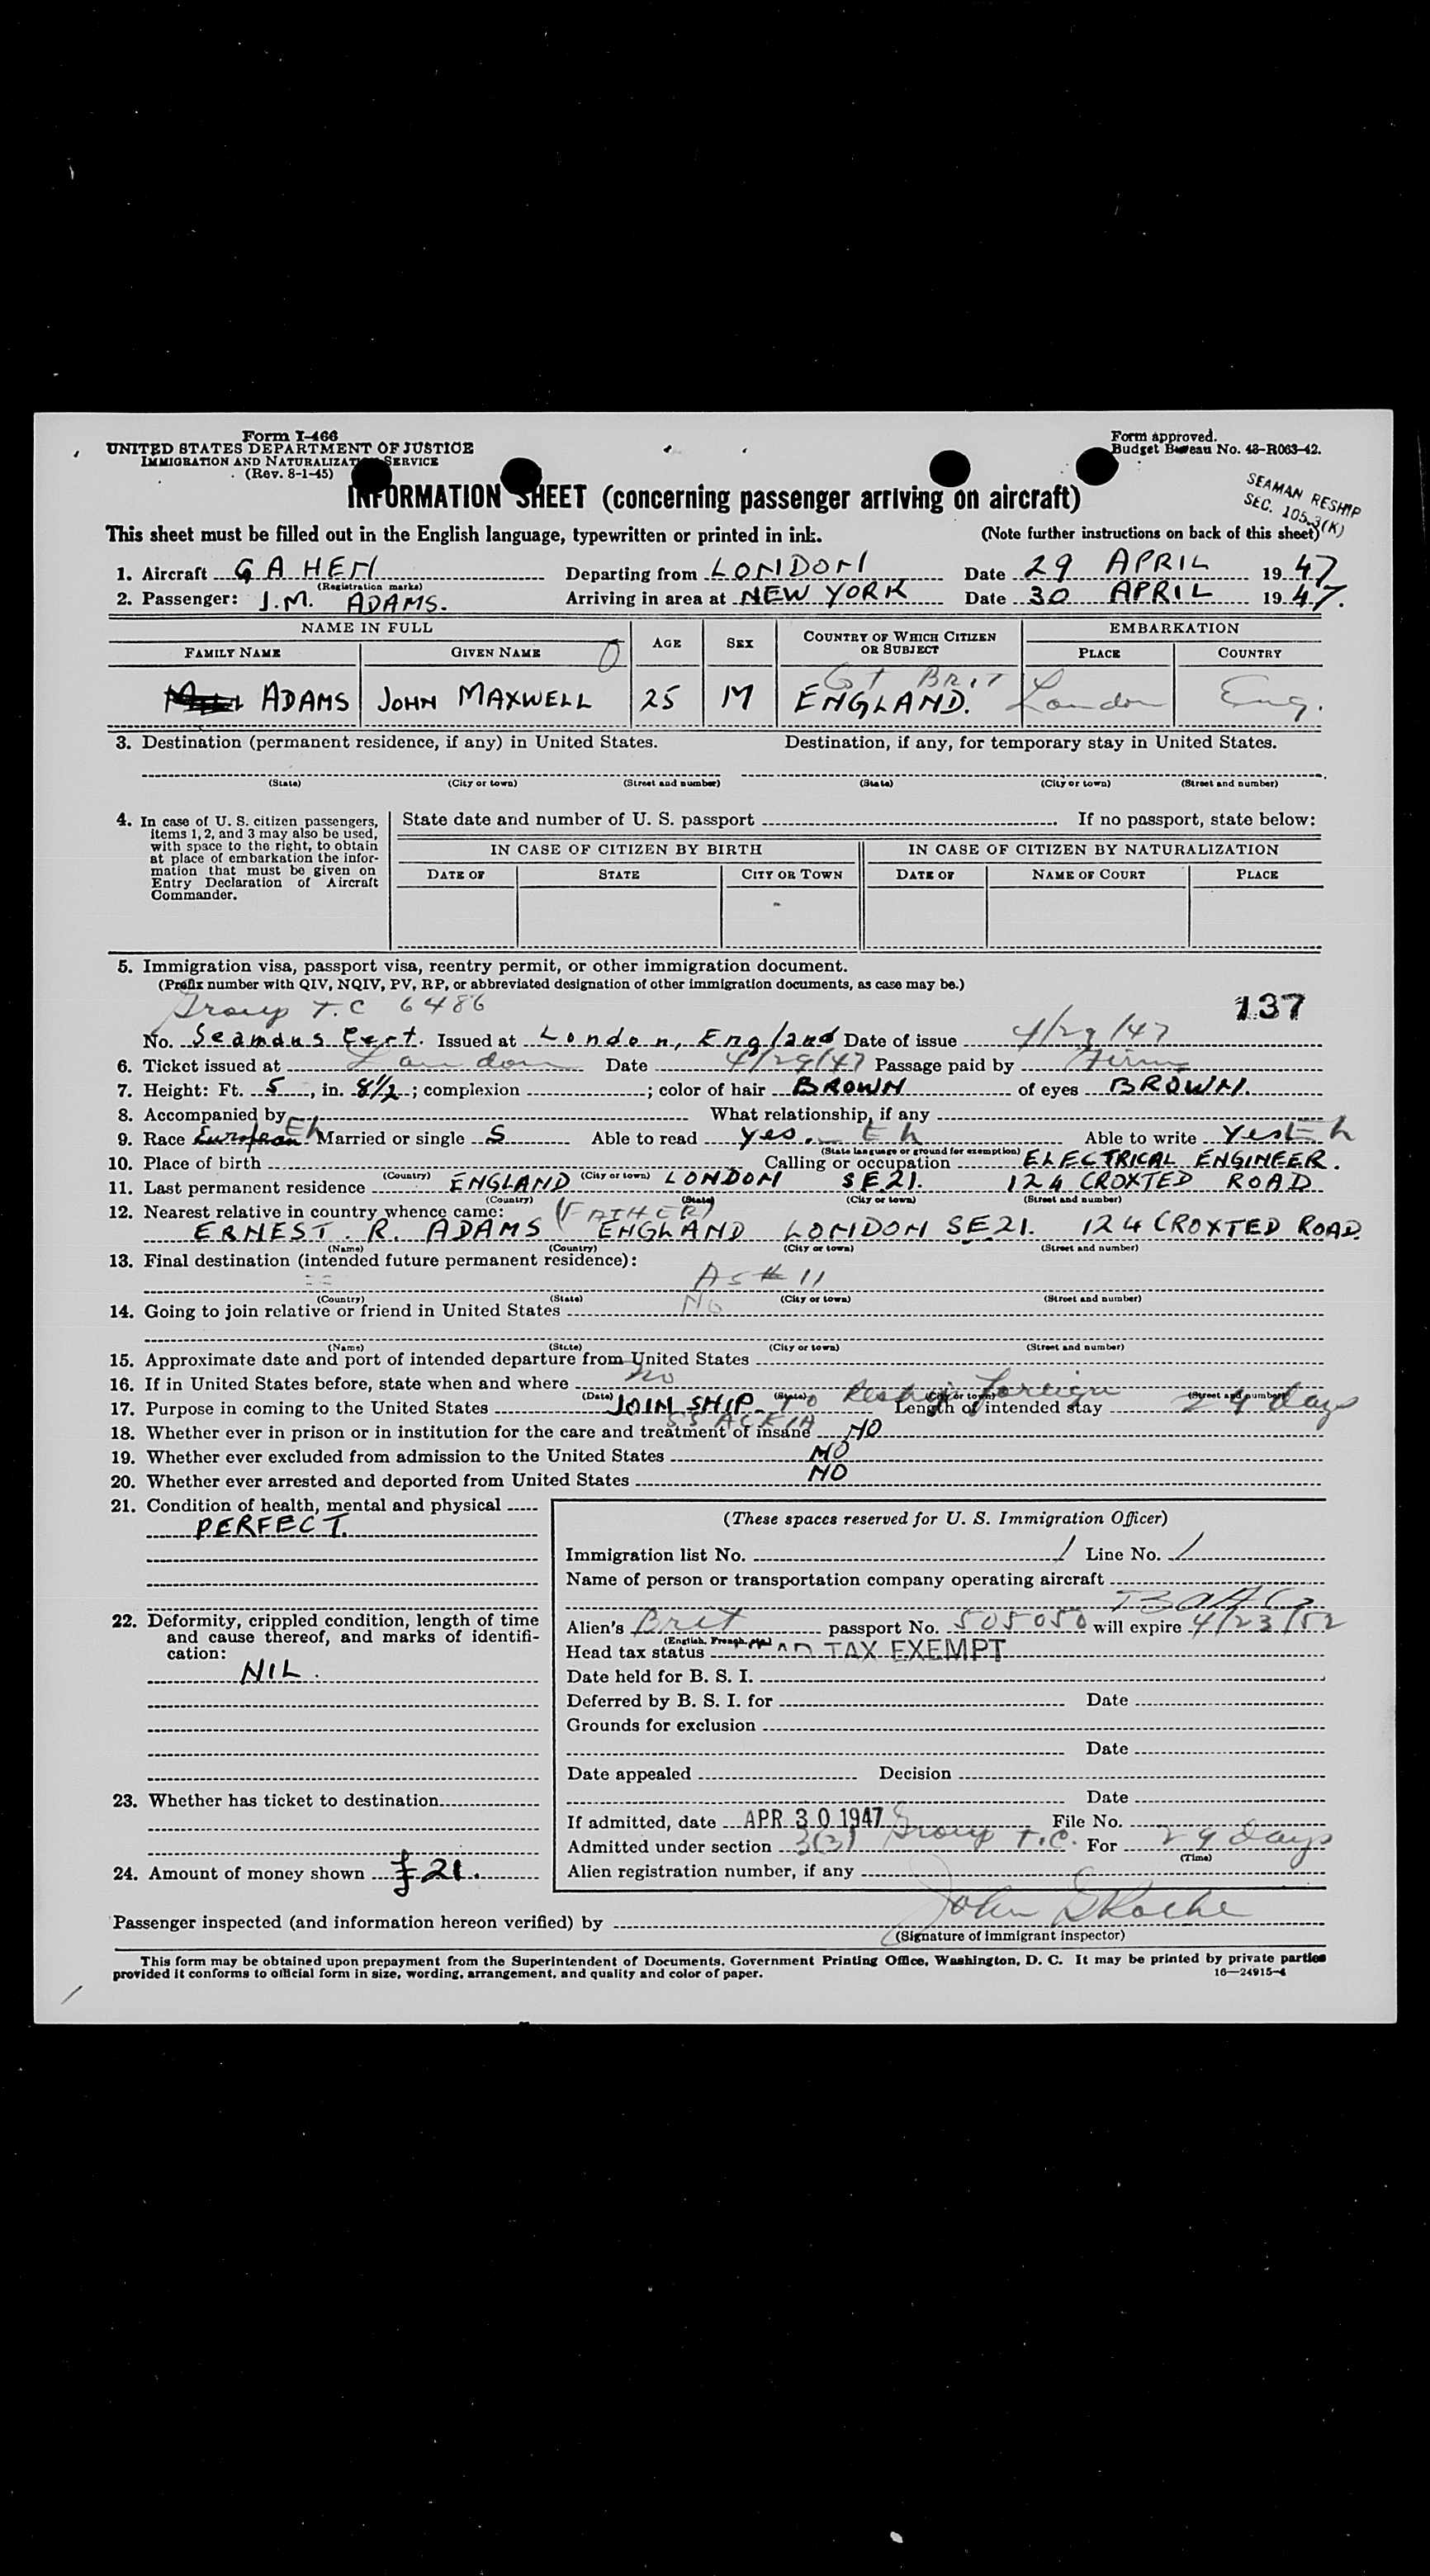 Form I-466
UNITED STATES DEPARTMENT OF JUSTICE
IMMIGRATION AND NATURALIZATION SERVICE
(Rev. 8-1-45)
Form approved.
Budget Bureau No. 43-R063-42.
INFORMATION SHEET (concerning passenger arriving on aircraft)
SEAMAN RESHIP
SEC. 105.3(K)
This sheet must be filled out in the English language, typewritten or printed in ink. (Note further instructions on back of this sheet)
1. Aircraft G A HEN Departing from LONDON Date 29 APRIL 1947
(Registration marks)
2. Passenger: J.M. ADAMS. Arriving in area at NEW YORK Date 30 APRIL 1947.
NAME IN FULL AGE SEX COUNTRY OF WHICH CITIZEN OR SUBJECT EMBARKATION
FAMILY NAME GIVEN NAME PLACE COUNTRY
Gt BRIT
ADAMS JOHN MAXWELL 25 M ENGLAND. London Eng.
3. Destination (permanent residence, if any) in United States. Destination, if any, for temporary stay in United States.
(State) (City or town) (Street and number) (State) (City or town) (Street and number)
4. In case of U. S. citizen passengers, items 1, 2, and 3 may also be used, with space to the right, to obtain at place of embarkation the information that must be given on Entry Declaration of Aircraft Commander.
State date and number of U. S. passport If no passport, state below:
IN CASE OF CITIZEN BY BIRTH IN CASE OF CITIZEN BY NATURALIZATION
DATE OF STATE CITY OR TOWN DATE OF NAME OF COURT PLACE
5. Immigration visa, passport visa, reentry permit, or other immigration document.
(Prefix number with QIV, NQIV, PV, RP, or abbreviated designation of other immigration documents, as case may be.)
Group T.C 6486 137
No. Seamans Cert. Issued at London, England Date of issue 4/29/47
6. Ticket issued at London Date 4/29/47 Passage paid by Firm
7. Height: Ft. 5, in. 8 1/2; complexion ; color of hair BROWN of eyes BROWN.
8. Accompanied by What relationship, if any
9. Race European Eh Married or single S Able to read yes. Eh Able to write Yes Eh
(State language or ground for exemption)
10. Place of birth Calling or occupation ELECTRICAL ENGINEER.
(Country) (City or town)
11. Last permanent residence ENGLAND LONDON SE21. 124 CROXTED ROAD
(Country) (State) (City or town) (Street and number)
12. Nearest relative in country whence came: (FATHER)
ERNEST. R. ADAMS ENGLAND LONDON SE21. 124 CROXTED ROAD.
(Name) (Country) (City or town) (Street and number)
13. Final destination (intended future permanent residence):
As # 11
(Country) (State) (City or town) (Street and number)
14. Going to join relative or friend in United States No
(Name) (State) (City or town) (Street and number)
15. Approximate date and port of intended departure from United States
16. If in United States before, state when and where No
(Date) (State) (City or town) (Street and number)
17. Purpose in coming to the United States JOIN SHIP. To Reship foreign Length of intended stay 29 days
18. Whether ever in prison or in institution for the care and treatment of insane NO
19. Whether ever excluded from admission to the United States NO
20. Whether ever arrested and deported from United States NO
21. Condition of health, mental and physical
PERFECT.
22. Deformity, crippled condition, length of time and cause thereof, and marks of identification:
NIL.
23. Whether has ticket to destination
24. Amount of money shown £21.
(These spaces reserved for U. S. Immigration Officer)
Immigration list No. 1 Line No. 1
Name of person or transportation company operating aircraft
BOAC
Alien's Brit passport No. 505050 will expire 4/23/52
(English, French, etc.)
Head tax status AD TAX EXEMPT
Date held for B. S. I.
Deferred by B. S. I. for Date
Grounds for exclusion
Date
Date appealed Decision
Date
If admitted, date APR 30 1947 File No.
Admitted under section 3(3) Group T.C. For 29 days
(Time)
Alien registration number, if any
Passenger inspected (and information hereon verified) by John
(Signature of immigrant inspector)
This form may be obtained upon prepayment from the Superintendent of Documents, Government Printing Office, Washington, D. C. It may be printed by private parties
provided it conforms to official form in size, wording, arrangement, and quality and color of paper. 16—24915-4